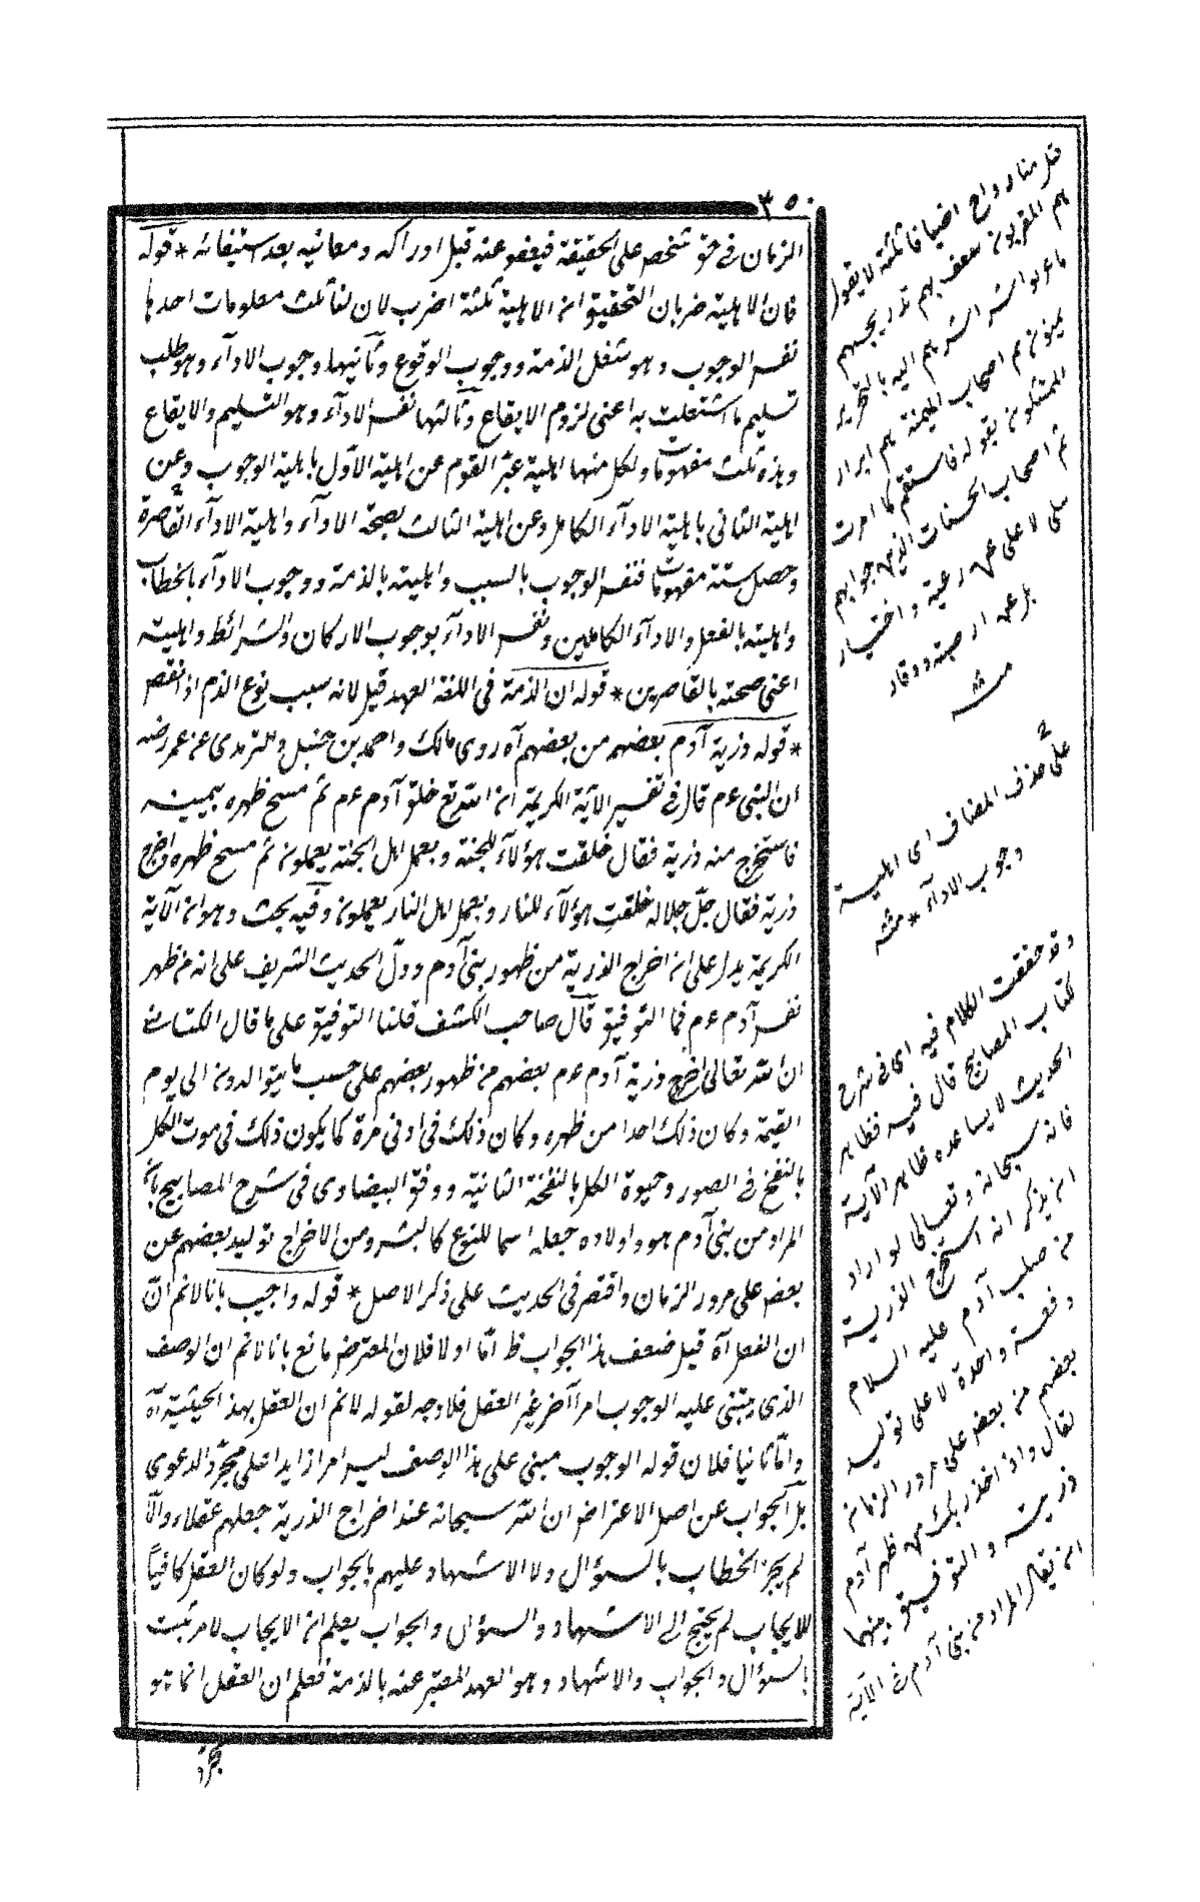 ٣٥٠
الزمان في حق شخص على الحقيقة فيعفو عنه قبل ادراكه ومعانيه بعد استيفائه * قوله
فان الاهلية ضربان التحقيق ان الاهلية ثلثة اضرب لان لنا ثلث معلومات احدها
نفس الوجوب وهو شغل الذمة ووجوب الوقوع وثانيها وجوب الادآء وهو طلب
تسليم ما اشتغلت به اعنى لزوم الايقاع وثالثها نفس الادآء وهو التسليم والايقاع
وهذه ثلث مفهومات ولكل منها اهلية عبّر القوم عن اهلية الاول باهلية الوجوب وعن
اهلية الثانى باهلية الادآء الكامل وعن اهلية الثالث بصحة الادآء واهلية الادآء القاصرة
وحصل ستة مفهومات فنفس الوجوب بالسبب واهليته بالذمة ووجوب الادآء بالخطاب
واهليته بالفعل والادآء الكاملين ونفس الادآء بوجوب الاركان والشرائط واهليته
اعنى صحته بالقاصرين * قوله ان الذمة فى اللغة العهد قيل لانه سبب نوع الذم اذا نقص
* قوله وذرية آدم بعضهم من بعضهم آه روى مالك واحمد بن حنبل والترمدى عن عمر رضه
ان النبى عم قال فى تفسير الآية الكريمة ان الله تع خلق آدم عم ثم مسح ظهره بيمينه
فاستخرج منه ذرية فقال خلقت هؤلاء للجنة وبعمل اهل الجنة يعملون ثم مسح ظهره واخرج
ذرية فقال جلّ جلاله خلقت هؤلاء للنار وبعمل اهل النار يعملون وفيه بحث وهو ان الآية
الكريمة يدل على ان اخراج الذرية من ظهور بنى آدم ودلّ الحديث الشريف على انه من ظهر
نفس آدم عم فما التوفيق قال صاحب الكشف قلنا التوفيق على ما قال الكتانى
ان الله تعالى اخرج ذرية آدم عم بعضهم من ظهور بعضهم على حسب ما يتوالدون الى يوم
القيمة وكان ذلك احدا من ظهره وكان ذلك فى اوفى مرة كما يكون ذلك فى موت الكل
بالنفخ فى الصور وحيوة الكل بالنفخة الثانية ووفق البيضاوى فى شرح المصابيح بان
المراد من بنى آدم هو واولاده جعله اسما للنوع كالبشر ومن الاخراج توليد بعضهم عن
بعض على مرور الزمان واقتصر فى الحديث على ذكر الاصل * قوله واجيب بانا لانم انّ
ان الفعل آه قيل ضعف هذا الجواب ظ امّا اولا فلان المعترض مانع بانا لانم ان الوصف
الذى يبتنى عليه الوجوب امرا آخر غير العقل فلا وجه لقوله لانم ان العقل بهذه الحيثية آه
وامّا ثانيا فلان قوله الوجوب مبنى على هذا الوصف ليس امرا زايدا على مجرّد الدعوى
بل الجواب عن اصل الاعتراض ان الله سبحانه عند اخراج الذرية جعلهم عقلاء والّا
لم يجز الخطاب بالسؤال ولا الاشهاد عليهم بالجواب ولو كان العقل كافياً
للايجاب لم يحتج الى الاشهاد والسؤال والجواب يعلم ان الايجاب لامر ثبت
بالسؤال والجواب والاشهاد وهو العهد المعبّر عنه بالذمة فعلم ان العقل انما هو
مجرد
هم المقربون
نم اصحاب الميمنة هم ابرار
بقوله فاستقم كما امرت
ثم اصحاب الحسنات الذين جوابهم
منه
على حذف المضاف اى اهلية
وجوب الادآء * منه
وقد حققت الكلام فيه اى فى شرح
كتاب المصابيح قال فيه فظاهر
الحديث لا يساعده ظاهر الآية
فانه سبحانه وتعالى لو اراد
ان يذكر انه استخرج الذرية
من صلب آدم عليه السلام
دفعة واحدة لا على توليد
بعضهم من بعض على مرور الزمان
لقال واذ اخذ ربك من ظهر آدم
ذريته والتوفيق بينهما
ان يقال المراد من بنى آدم فى الآية